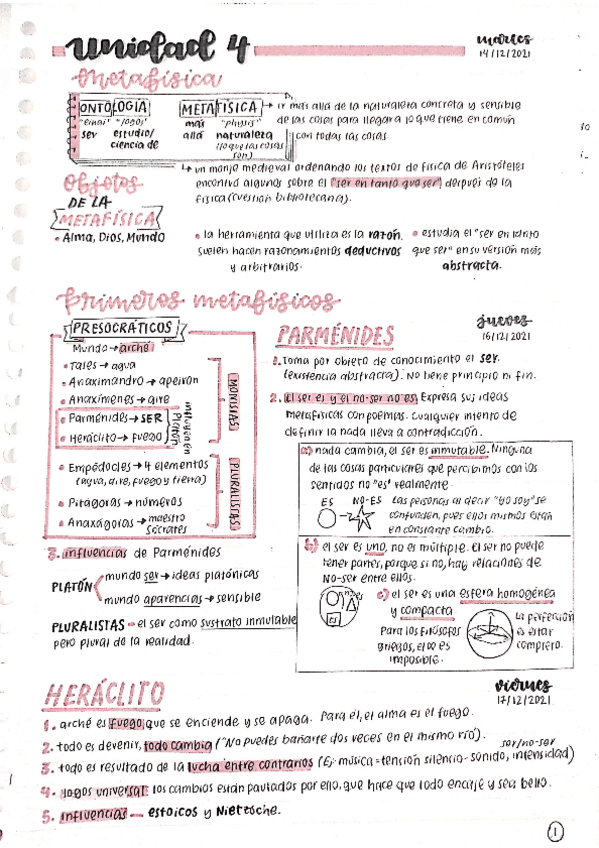 Unidad 4
martes
14/12/2021
metafísica
ONTOLOGÍA
"emai" "logos"
ser estudio/
ciencia de
METAFÍSICA
más "physis"
allá naturaleza
(lo que las cosas
son)
→ ir más allá de la naturaleza concreta y sensible
de las cosas para llegar a lo que tiene en común
con todas las cosas.
↳ un monje medieval ordenando los textos de física de Aristóteles
encontró algunos sobre el "ser en tanto que ser" después de la
física (cuestión bibliotecaria).
Objetos
DE LA
METAFÍSICA
• Alma, Dios, Mundo
• la herramienta que utiliza es la razón.
suelen hacen razonamientos deductivos
y arbitrarios.
• estudia el "ser en tanto
que ser" en su versión más
abstracta.
primeros metafísicos
PRESOCRÁTICOS
Mundo → arché
• Tales → agua
• Anaximandro → apeiron
• Anaxímenes → aire
• Parménides → SER
• Heráclito → fuego
influyen en
Platón
MONISTAS
• Empédocles → 4 elementos
(agua, aire, fuego y tierra)
• Pitágoras → números
• Anaxágoras → maestro
Sócrates
PLURALISTAS
jueves
16/12/2021
PARMÉNIDES
1. Toma por objeto de conocimiento el ser.
(existencia abstracta). No tiene principio ni fin.
2. El ser es y el no-ser no es. Expresa sus ideas
metafísicas con poemas. Cualquier intento de
definir la nada lleva a contradicción.
a) nada cambia, el ser es inmutable. Ninguna
de las cosas particulares que percibimos con los
sentidos no "es" realmente.
ES NO-ES
Las personas al decir "yo soy" se
confunden, pues ellos mismos están
en constante cambio.
b) el ser es uno, no es múltiple. El ser no puede
tener partes, porque si no, hay relaciones de
No-ser entre ellos.
c) el ser es una esfera homogénea
y compacta
Para los filósofos
griegos, el ∞ es
imposible.
La perfección
es estar
completo.
3. influencias de Parménides
PLATÓN
mundo ser → ideas platónicas
mundo apariencias → sensible
PLURALISTAS → el ser como sustrato inmutable
pero plural de la realidad.
viernes
17/12/2021
HERÁCLITO
1. arché es fuego, que se enciende y se apaga. Para él, el alma es el fuego.
2. todo es devenir, todo cambia ("No puedes bañarte dos veces en el mismo río).
ser/no-ser
3. todo es resultado de la lucha entre contrarios (Ej: música = tensión silencio-sonido, intensidad)
4. logos universal: los cambios están pautados por ello, que hace que todo encaje y sea bello.
5. influencias — estoicos y Nietzsche.
1